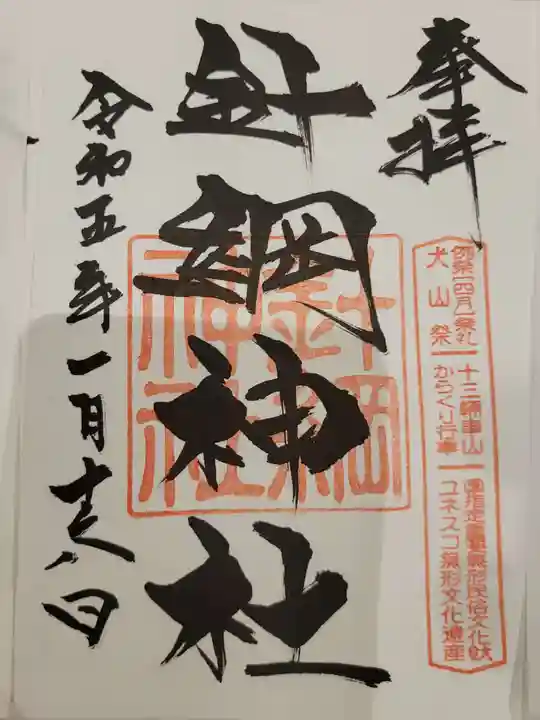 奉拝
例祭[四月]祭礼 十三輛車山 国指定重要無形民俗文化財
犬山祭 からくり行事 ユネスコ無形文化遺産
針綱神社
針綱神社
令和五年一月十八日